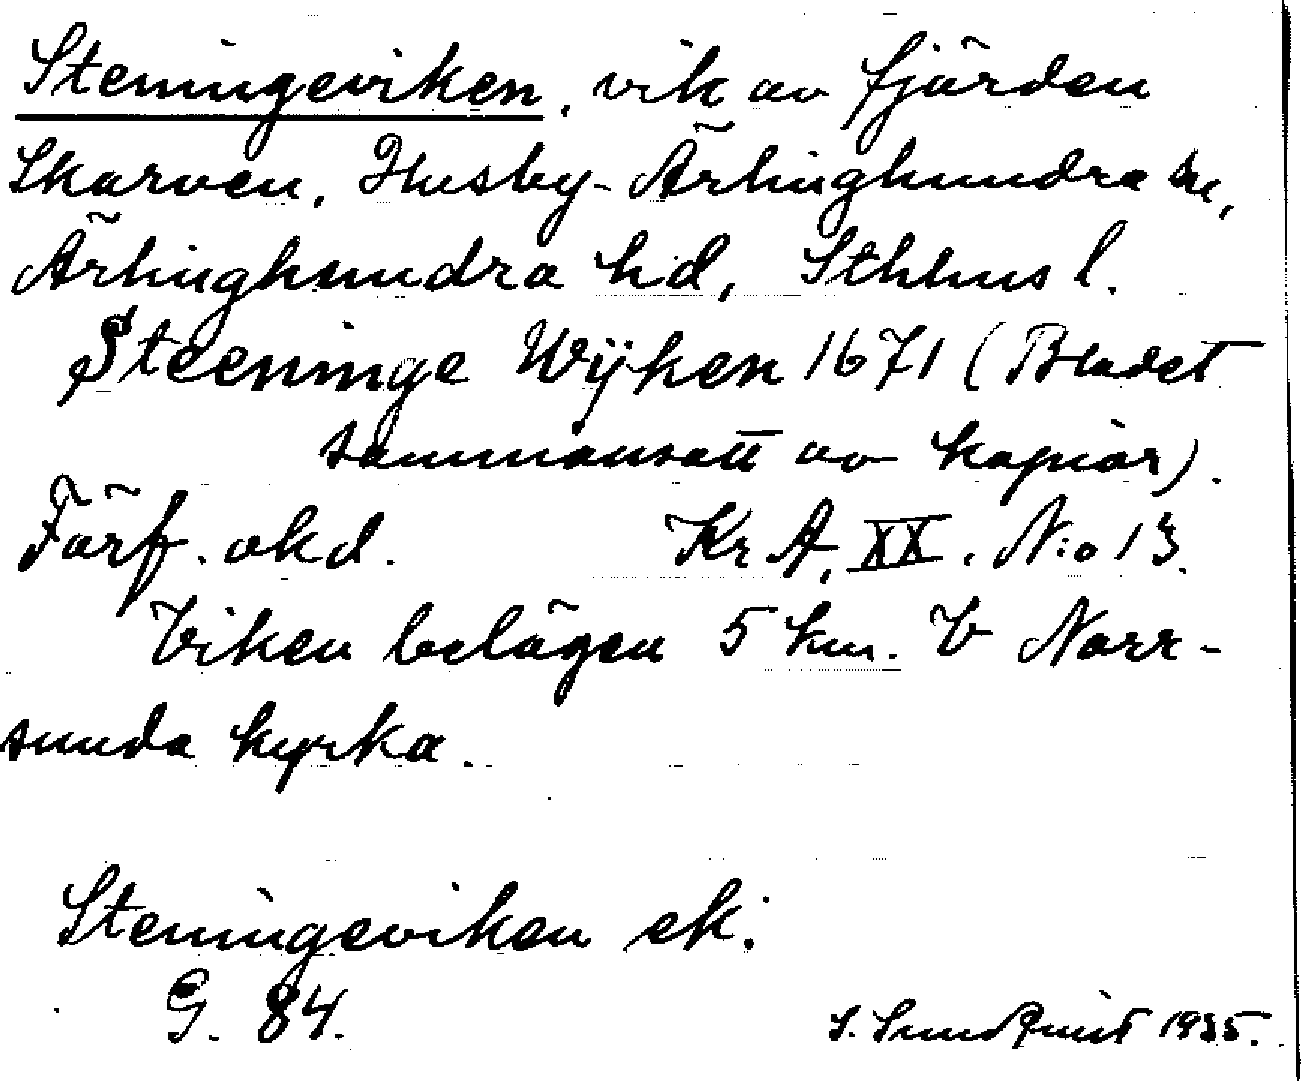 Steningeviken, vik av fjärden
Skarven, Husby-Ärlinghundra sn,
Ärlinghundra hd, Sthlms l.
Steeninge Wijken 1671 (Bladet
sammansatt av kopior).
Förf. okd. KrA, XX. N:o 13.
Viken belägen 5 km. V Norr-
sunda kyrka.
Steningeviken ek.
G. 84.
S. Sundqvist 1935.